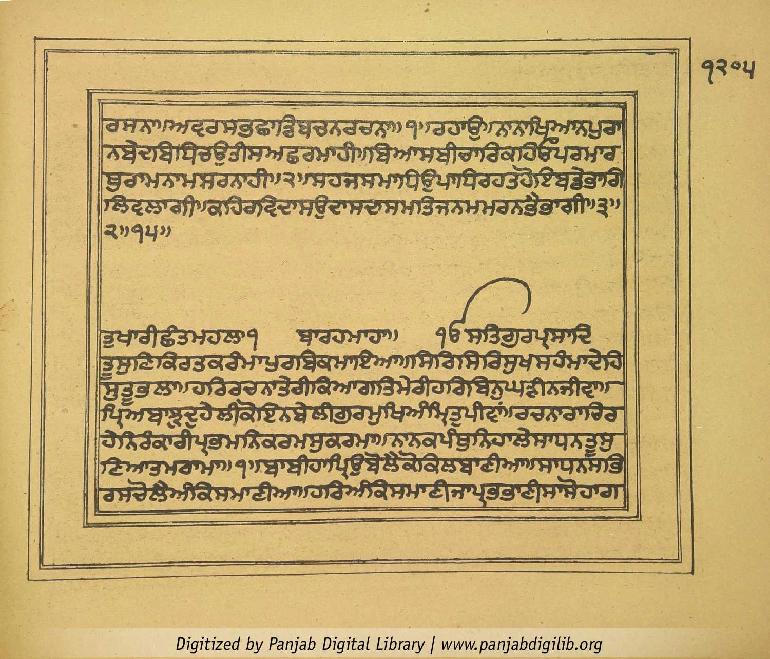 ੧੨੦੫
ਰਸਨਾ॥ਅਵਰਸਭਛਾਡਿਬਚਨਰਚਨਾ॥੧॥ਰਹਾਉ॥ਨਾਨਾਖਿਆਨਪੁਰਾ
ਨਬੇਦਬਿਧਿਚਉਤੀਸਅਛਰਮਾਹੀ॥ਬਿਆਸਬੀਚਾਰਿਕਹਿਓਪਰਮਾਰ
ਥੁਰਾਮਨਾਮਸਰਨਾਹੀ॥੨॥ਸਹਜਸਮਾਧਿਉਪਾਧਿਰਹਤਹੋਇਬਡੇਭਾਗਿ
ਲਿਵਲਾਗੀ॥ਕਹਿਰਵਿਦਾਸਉਦਾਸਦਾਸਮਤਿਜਨਮਮਰਨਭੈਭਾਗੀ॥੩॥
੨॥੧੫॥
ਤੁਖਾਰੀਛੰਤਮਹਲਾ੧ ਬਾਰਹਮਾਹਾ॥ ੴਸਤਿਗੁਰਪ੍ਰਸਾਦਿ
ਤੂਸੁਣਿਕਿਰਤਕਰੰਮਾਪੁਰਬਿਕਮਾਇਆ॥ਸਿਰਿਸਿਰਿਸੁਖਸਹੰਮਾਦੇਹਿ
ਸੁਤੂਭਲਾ॥ਹਰਿਰਚਨਾਤੇਰੀਕਿਆਗਤਿਮੇਰੀਹਰਿਬਿਨੁਘੜੀਨਜੀਵਾ॥
ਪ੍ਰਿਅਬਾਝੁਦੁਹੇਲੀਕੋਇਨਬੇਲੀਗੁਰਮੁਖਿਅੰਮ੍ਰਿਤੁਪੀਵਾਂ॥ਰਚਨਾਰਾਚਿਰ
ਹੇਨਿਰੰਕਾਰੀਪ੍ਰਭਮਨਿਕਰਮਸੁਕਰਮਾ॥ਨਾਨਕਪੰਥੁਨਿਹਾਲੇਸਾਧਨਤੂਸੁ
ਣਿਆਤਮਰਾਮਾ॥੧॥ਬਾਬੀਹਾਪ੍ਰਿਉਬੋਲੇਕੋਕਿਲਬਾਣੀਆ॥ਸਾਧਨਸਭਿ
ਰਸਚੋਲੈਅੰਕਿਸਮਾਣੀਆ॥ਹਰਿਅੰਕਿਸਮਾਣੀਜਾਪ੍ਰਭਭਾਣੀਸਾਸੋਹਾਗ
Digitized by Panjab Digital Library | www.panjabdigilib.org